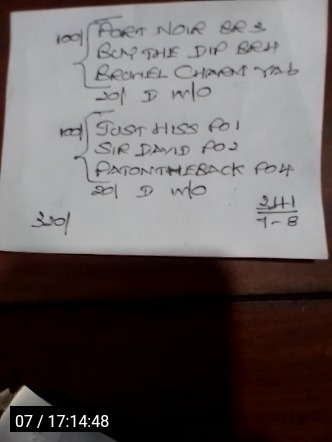 100/ PORT NOIR BR3
BUY THE DIP BR4
BROMEL CHARM YA6
20/ D W/O
100/ JUST HISS PO1
SIR DAVID PO2
PATONTHEBACK PO4
20/ D W/O
320/
241
7-8
07 / 17:14:48